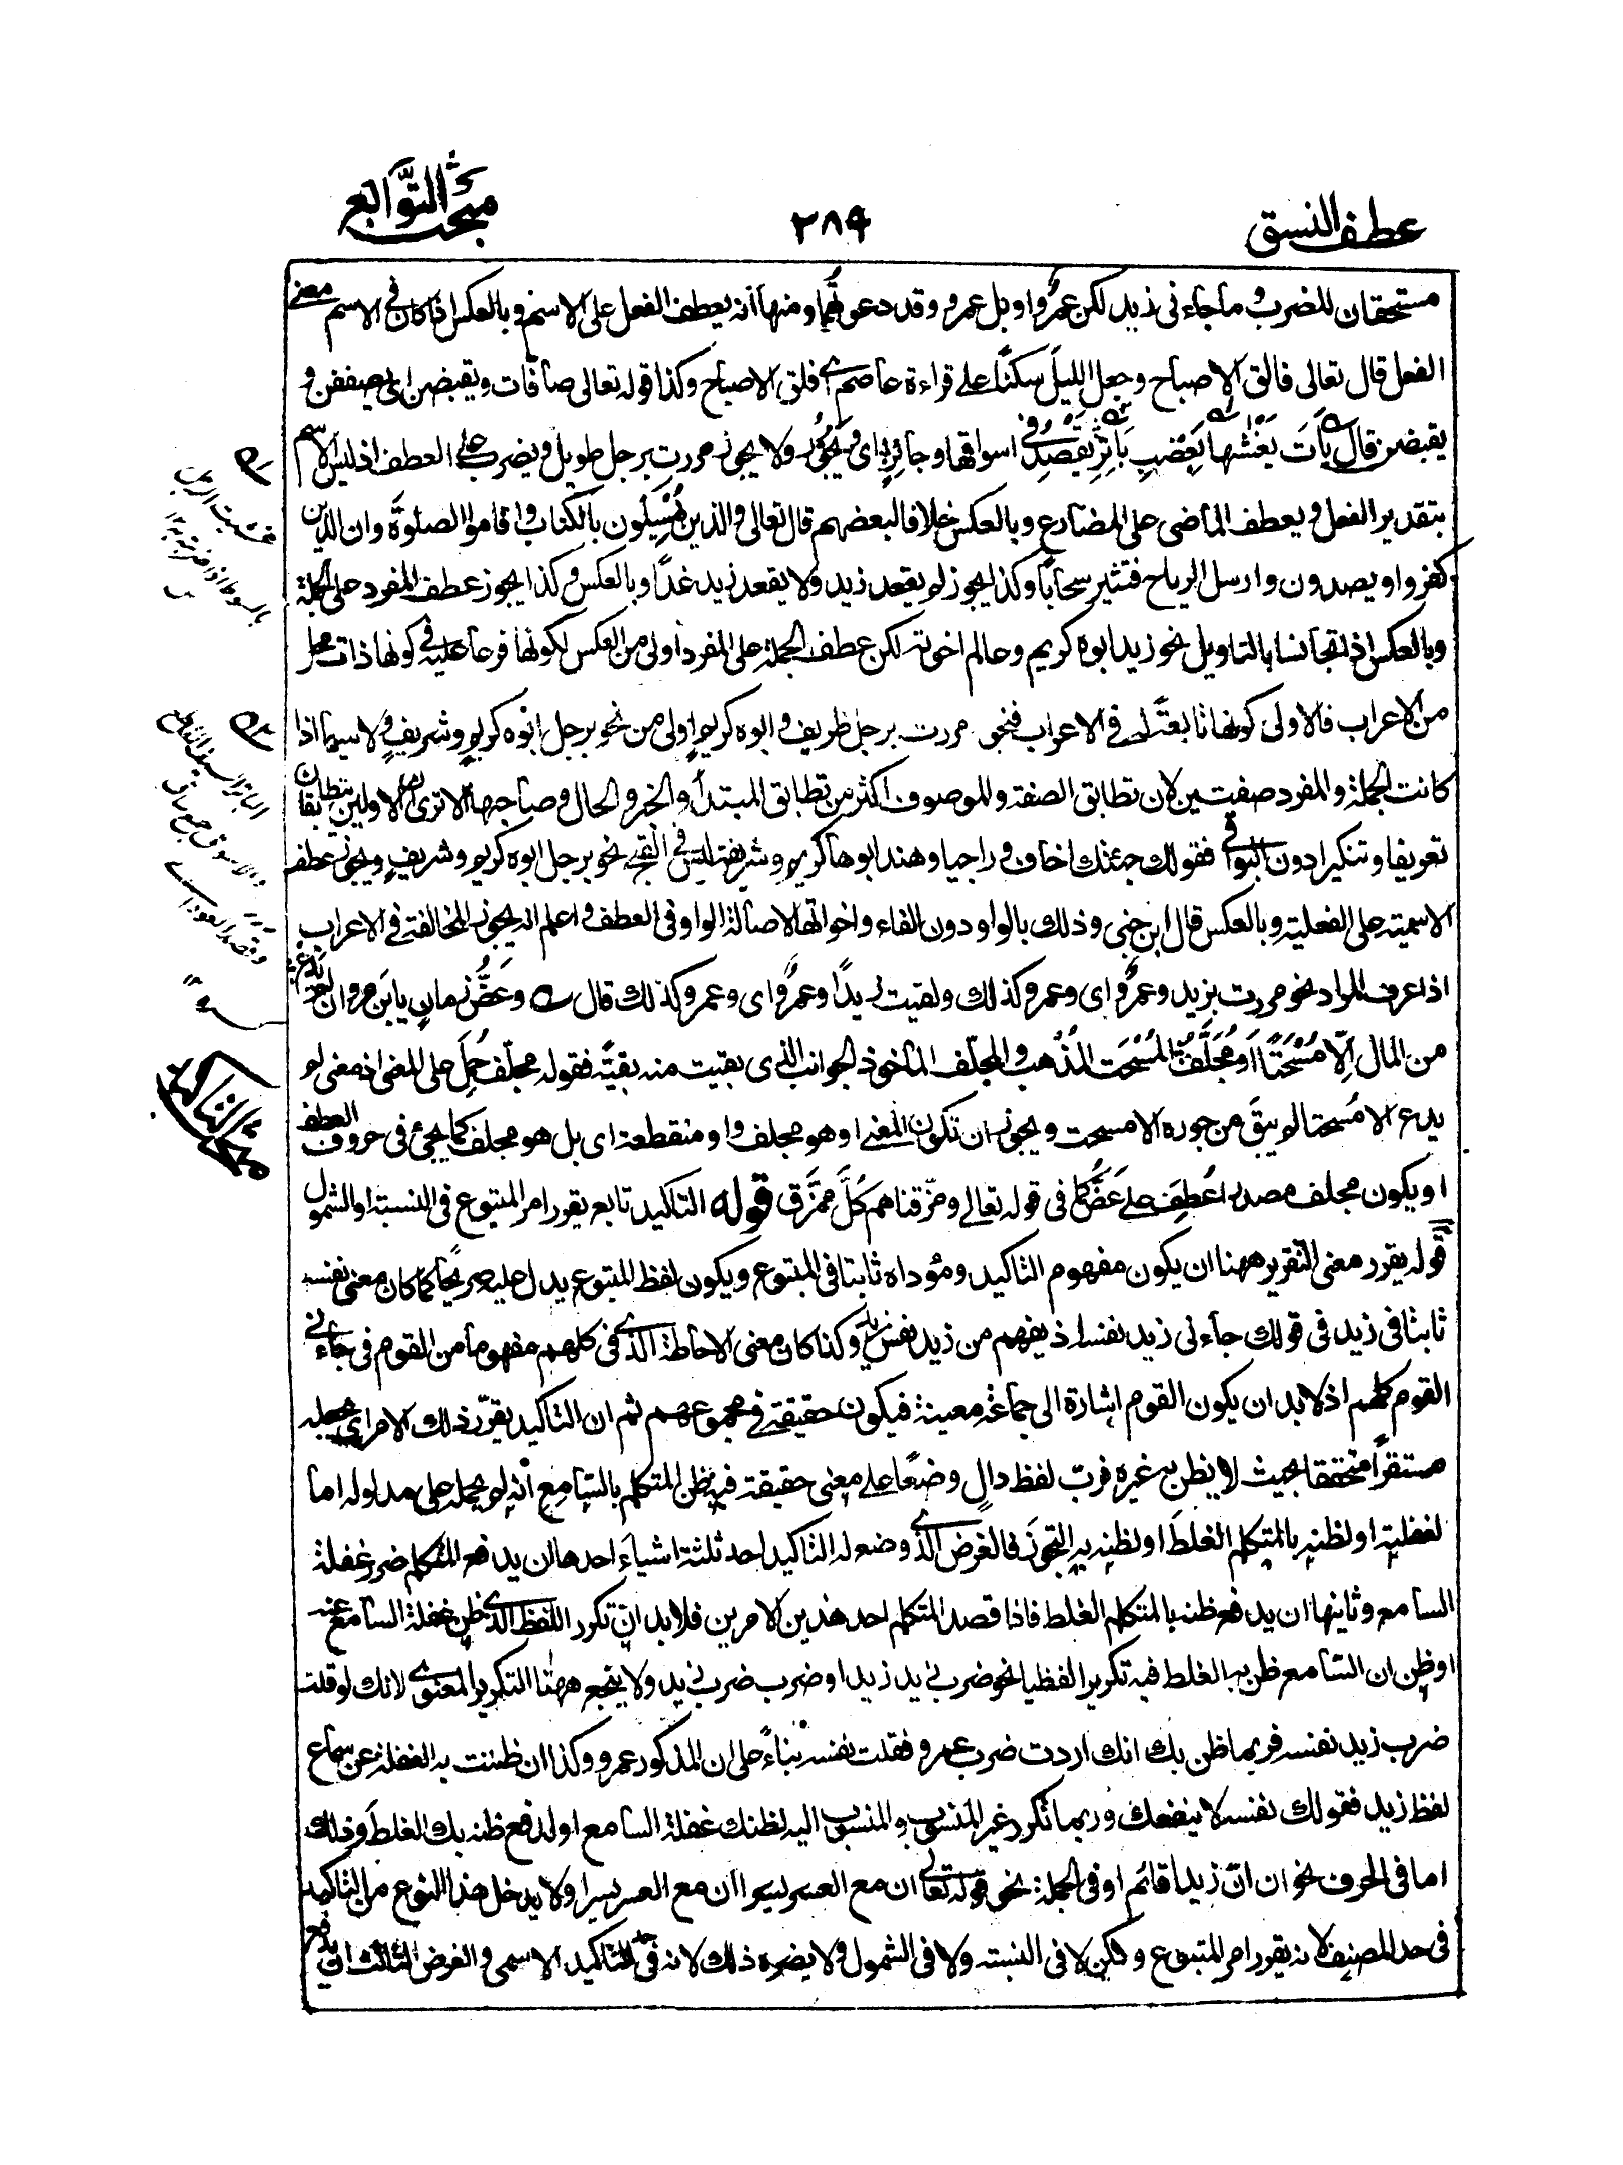 عطف النسق
٢٨٩
مبحث التوابع
مستحقان للضرب وما جاءنى زيد لكن عمرو او بل عمرو وقد دعوتهما ومنها انه يعطف الفعل على الاسم وبالعكس اذا كان فى الاسم معنى
الفعل قال تعالى فالق الاصباح وجعل الليل سكنًا على قراءة عاصم اى فلق الاصباح وكذا قوله تعالى صافات ويقبضن اى يصففن و
يقبضن قال ؎ بَاتَ يغشيها بِعَضْبٍ بَاتِرٍ ؎ يَقْصِدُ فى اسواقها وجائر اى ويجور ولا يجوز مررت برجل طويل ويضرب على العطف اذ ليس الاسم
بتقدير الفعل ويعطف الماضى على المضارع وبالعكس خلافا لبعضهم قال تعالى والذين يُمَسِّكون بالكتاب واقاموا الصلوة وان الذين
كفروا ويصدون وارسل الرياح فتثير سحابًا وكذا يجوز لم يقعد زيد ولا يقعد زيد غدًا وبالعكس وكذا يجوز عطف المفرد على الجملة
وبالعكس اذا تجانسا بالتاويل نحو زيد ابوه كريم وعالم اخوته لكن عطف الجملة على المفرد اولى من العكس لكونها فرعا عليه فى كونها ذات محل
من الاعراب فالاولى كونها تابعة له فى الاعراب فنحو مررت برجل ظريف وابوه كريم اولى من نحو برجل ابوه كريم وشريف ولا سيما اذا
كانت الجملة والمفرد صفتين لان تطابق الصفة والموصوف اكثر من تطابق المبتدأ والخبر والحال وصاحبها الا ترى ان الاولين يتطابقان
تعريفا وتنكيرا دون البواقى فقولك جئتك اخاف وراجيا وهند ابوها كريم وشريفة ليس فى القبح نحو برجل ابوه كريم وشريف ويجوز عطف
الاسمية على الفعلية وبالعكس قال ابن جنى وذلك بالواو دون الفاء واخواتها لاصالة الواو فى العطف واعلم انه يجوز المخالفة فى الاعراب
اذا عرف المراد نحو مررت بزيد وعمرو اى وعمرو كذلك ولقيت زيدًا وعمرو اى وعمرو كذلك قال ؎ وعَضُّ زمانٍ يا ابن مروان لم يَدَعْ ؎
من المال اِلّا مُسْحَتًا اَو مُجَلَّفُ المسحت المُذْهَب والمجلف الماخوذ الجوانب الذى بقيت منه بقية فقوله مجلف حُمِلَ على المعنى اذ معنى لم
يدع الا مُسحتا لم يبق من جوره الا مسحت ويجوز ان تكون المعنى او هو مجلف واو منقطعة اى بل هو مجلف كما يجئ فى حروف العطف
او يكون مجلف مصدرا عُطِفَ على عَضُّ كما فى قوله تعالى ومزقناهم كُلَّ ممزَّق قوله التاكيد تابع يقرر امر المتبوع فى النسبة او الشمول
قوله يقرر معنى التقرير ههنا ان يكون مفهوم التاكيد ومؤداه ثابتا فى المتبوع ويكون لفظ المتبوع يدل عليه صريحا كما كان معنى نفسه
ثابتا فى زيد فى قولك جاءنى زيد نفسه اذ يفهم من زيد نفس زيد وكذا كان معنى الاحاطة الذى فى كلهم مفهوما من القوم فى جاءنى
القوم كلهم اذ لا بد ان يكون القوم اشارة الى جماعة معينة فيكون حقيقة فى مجموعهم ثم ان التاكيد يقرر ذلك الامر اى يجعله
مستقرًا متحققا بحيث لا يظن به غيره فرب لفظ دال وضعًا على معنى حقيقة فيه يظن المتكلم بالسامع انه لم يحمله على مدلوله اما
لغفلته او لظنه بالمتكلم الغلطَ او لظنه به التجوز فالغرض الذى وضع له التاكيد احد ثلثة اشياء احدها ان يدفع المتكلم ضرر غفلة
السامع وثانيها ان يدفع ظنه بالمتكلم الغلط فاذا قصد المتكلم احد هذين الامرين فلا بد ان تكرر اللفظ الذى ظن غفلة السامع عنه
او ظن ان السامع ظن به الغلط فيه تكريرا لفظيا نحو ضرب زيد زيد او ضرب ضرب زيد ولا ينجع ههنا التكرير المعنوى لانك لو قلت
ضرب زيد نفسه فربما ظن بك انك اردت ضرب عمرو فقلت نفسه بناءً على ان المذكور عمرو وكذا ان ظننت به الغفلة عن سماع
لفظ زيد فقولك نفسه لا ينفعك وربما تكرر غير المنسوب والمنسوب اليه لظنك غفلة السامع او لدفع ظنه بك الغلطَ وذلك
اما فى الحرف نحو ان انّ زيدا قائم او فى الجملة نحو قوله تعالى ان مع العسر يسرا ان مع العسر يسرا ولا يدخل هذا النوع من التاكيد
فى حد المصنف لانه يقرر امر المتبوع ولكن لا فى النسبة ولا فى الشمول ولا يضره ذلك لانه فى حد التاكيد الاسمى والغرض الثالث ان يدفع
مبحث التاكيد